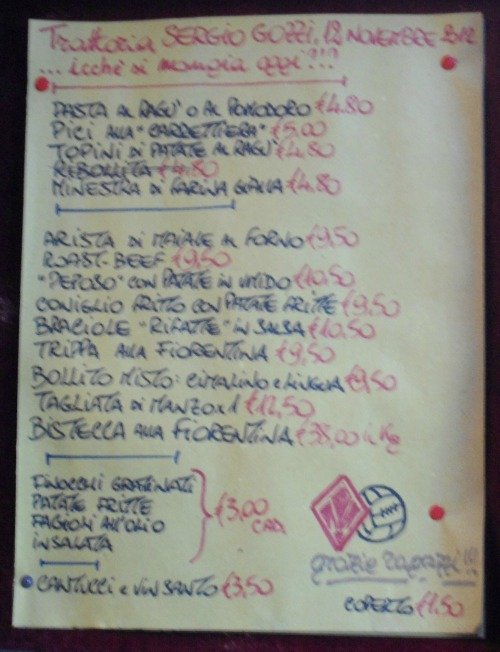 Trattoria SERGIO GOZZI, 12 NOVEMBRE 2012
... icchè si mangia oggi?!?
PASTA AL RAGU' O AL POMODORO €4.80
PICI ALLA "CARRETTIERA" €5,00
TOPINI DI PATATE AL RAGU' €4.80
RIBOLLITA €4.80
MINESTRA DI FARINA GIALLA €4.80
ARISTA DI MAIALE AL FORNO €9,50
ROAST-BEEF €9,50
"PEPOSO" CON PATATE IN UMIDO €10,50
CONIGLIO FRITTO CON PATATE FRITTE €9,50
BRACIOLE "RIFATTE" IN SALSA €10,50
TRIPPA ALLA FIORENTINA €9,50
BOLLITO MISTO: e LINGUA €9,50
TAGLIATA DI MANZO X1 €12,50
BISTECCA ALLA FIORENTINA €38,00 il Kg
FINOCCHI GRATINATI
PATATE FRITTE
FAGIOLI ALL'OLIO
INSALATA
€3,00
CAD.
grazie ragazzi!!!
CANTUCCI e VIN SANTO €3,50
COPERTO €1.50